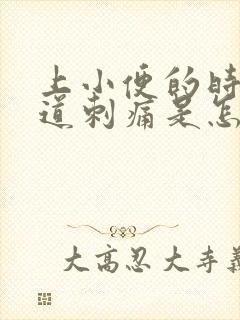 上小便的时
道刺痛是怎
大高忍大寺